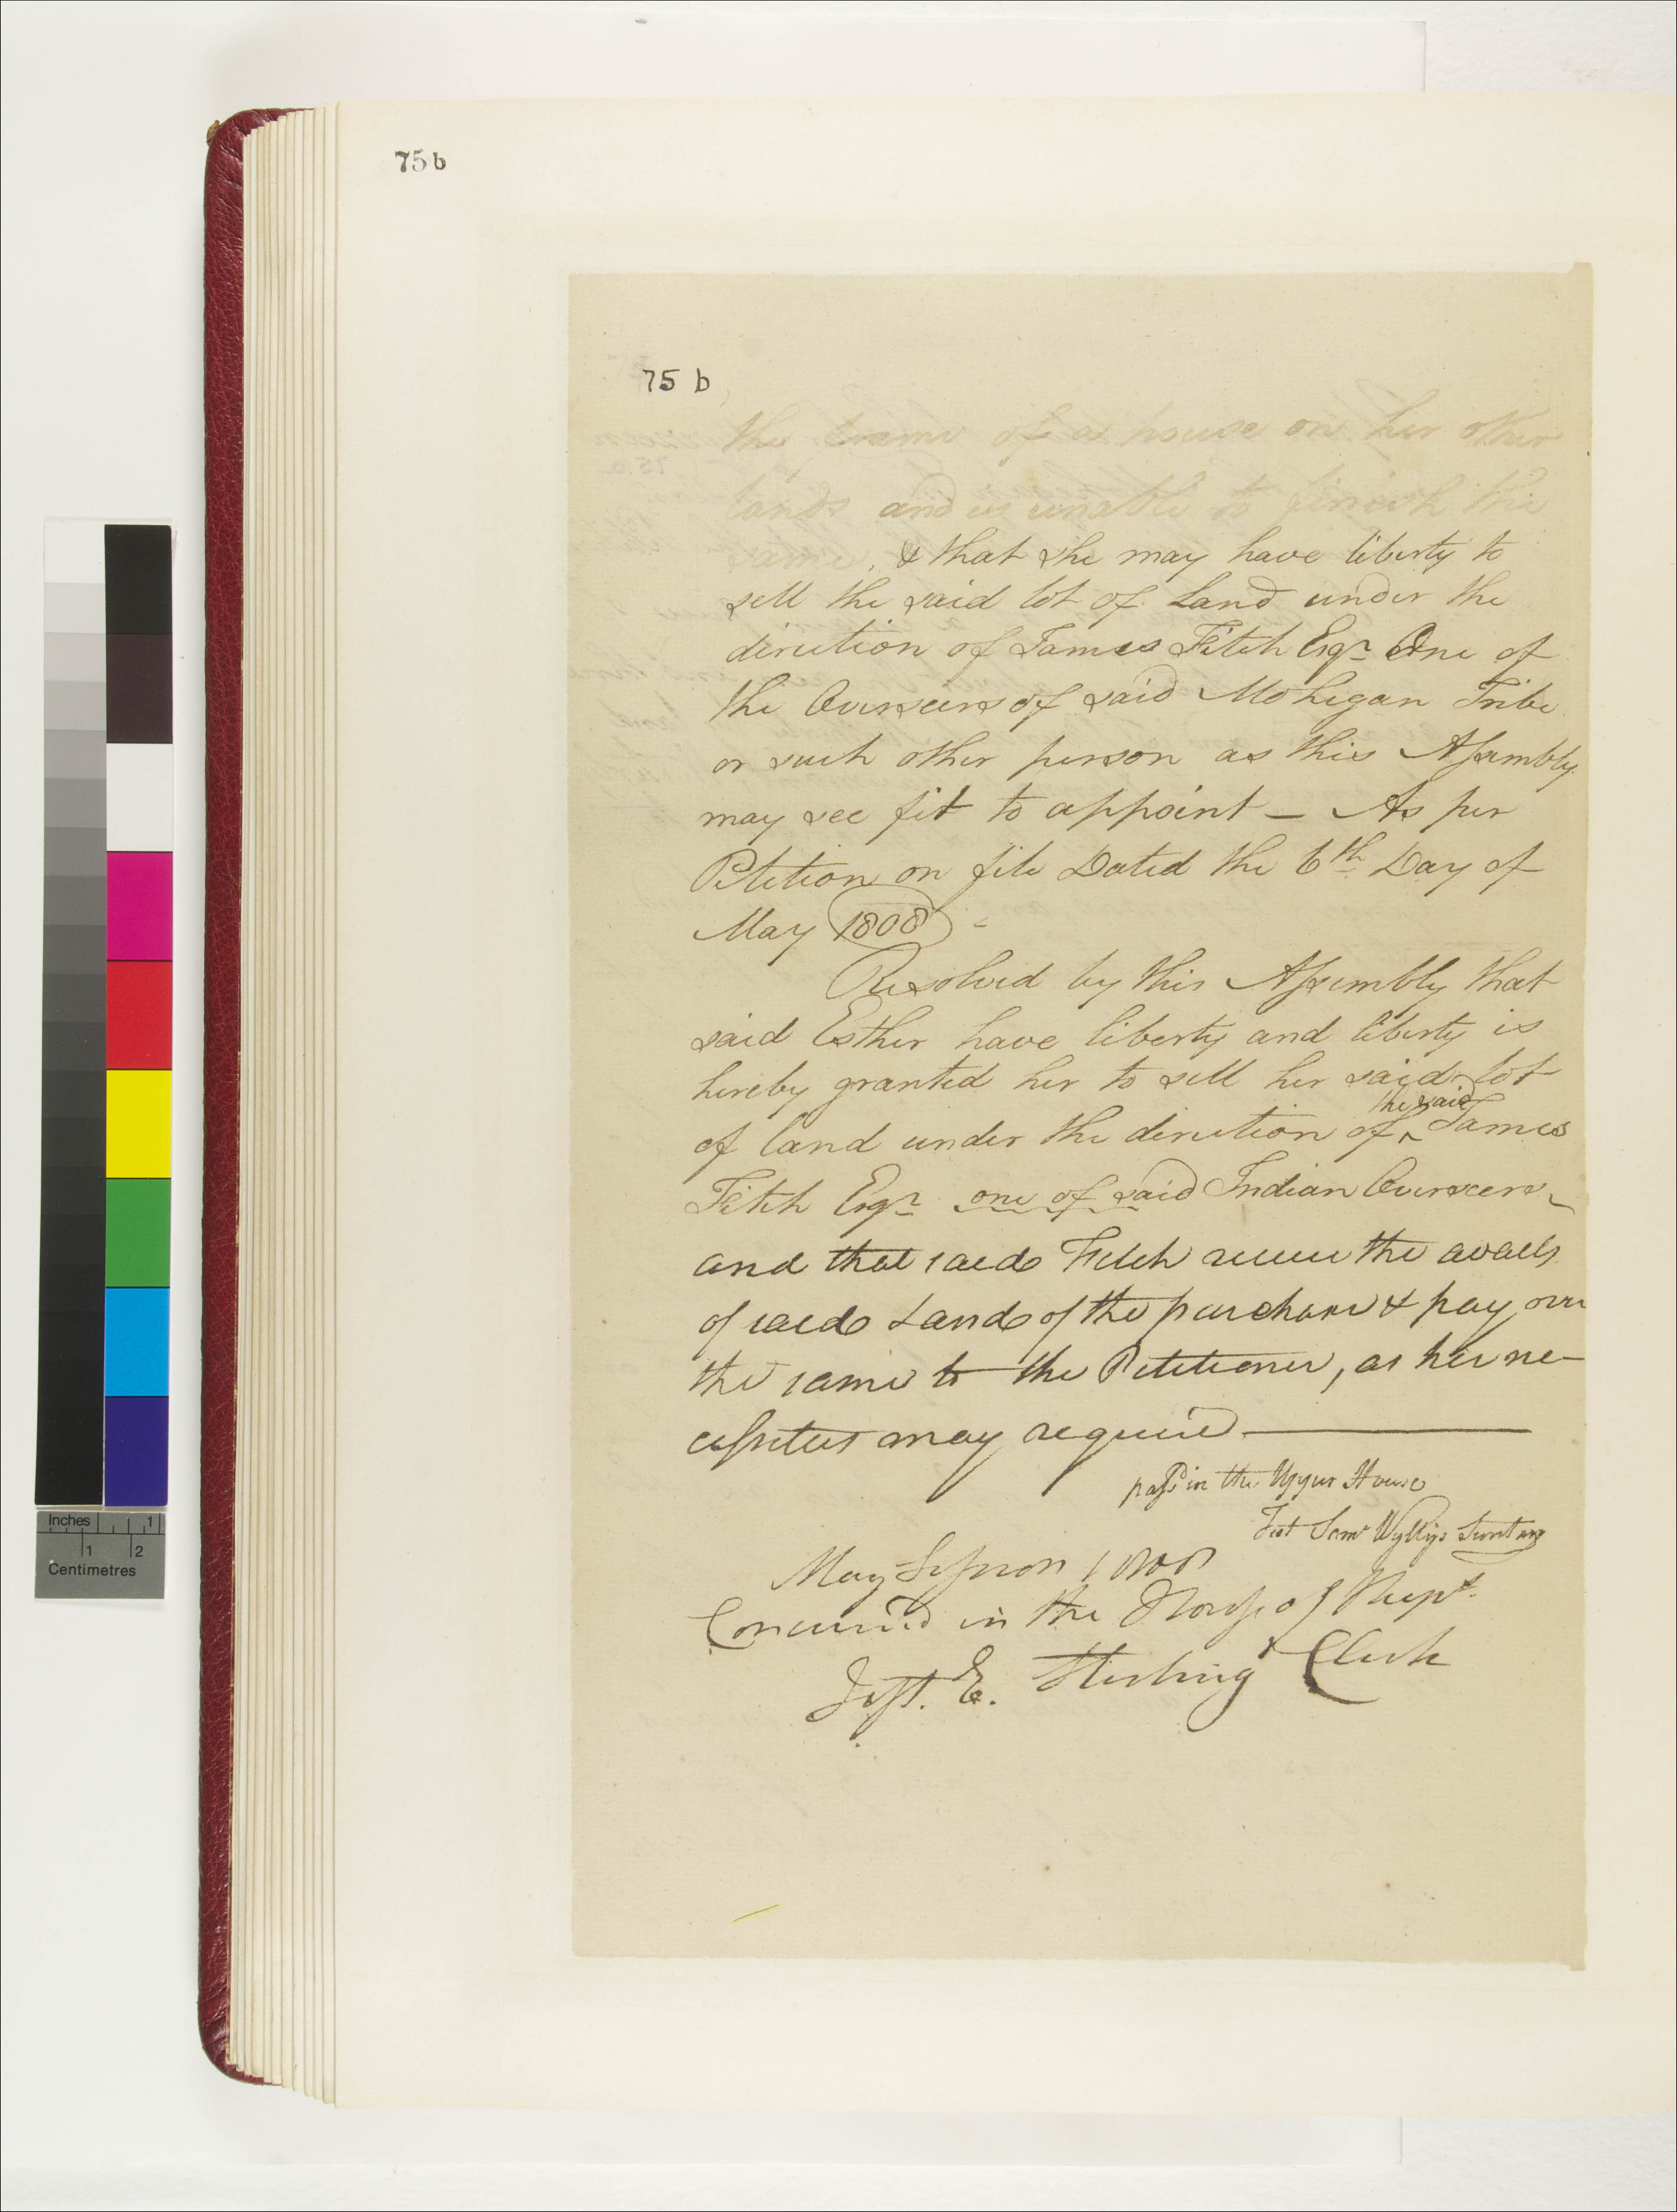 75 b
75 b
the frame of a house on her other
lands and is unable to finish the
same, & that she may have liberty to
sell the said lot of Land under the
direction of James Fitch Esqr. One of
the Overseers of said Mohegan Tribe
or such other person as this Assembly
may see fit to appoint — As per
Petition on file Dated the 6th Day of
May 1808 -
Resolved by this Assembly that
said Esther have liberty and liberty is
hereby granted her to sell her said lot
the said
of land under the direction of ^ James
Fitch Esqr. one of said Indian Overseers
and that said Fitch receive the avails
of said Land of the purchaser & pay over
the same to the Petitioner, as her ne-
cessities may require
passd in the Upper House
Test Saml Wyllys Secretary
May Session 1808
Concurred in the House of Reps.
Test. E. Sterling Clerk
Inches 1
1 2
Centimetres